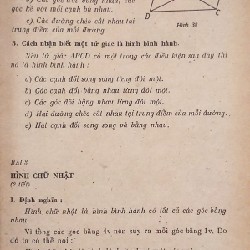 góc kề với mỗi cạnh bù nhau.
c) Các đường chéo cắt nhau tại
trung điểm của mỗi đường.
D
Hình 31
5. Cách nhận biết một tứ giác là hình bình hành.
Nếu tứ giác ABCD có một trong các điều kiện sau đây thì
nó là hình bình hành:
a) Các cạnh đối song song từng đôi một.
b) Các cạnh đối bằng nhau từng đôi một.
c) Các góc đối bằng nhau từng đôi một.
d) Hai đường chéo cắt nhau tại trung điểm của mỗi đường.
e) Hai cạnh đối song song và bằng nhau.
Bài 5
HÌNH CHỮ NHẬT
1. Định nghĩa:
Hình chữ nhật là hình bình hành có tất cả các góc bằng
nhau.
Vì tổng các góc bằng 4v nên suy ra mỗi góc bằng 1v. Do
đó ta có thể nói: